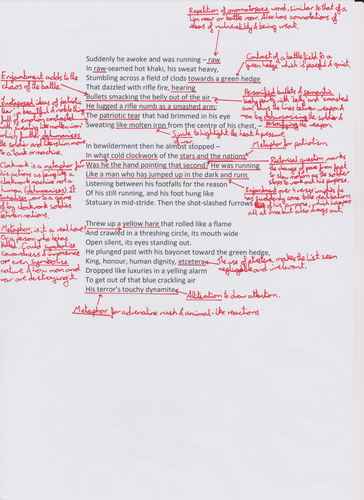 Repetition of onomatopoeic word, similar to that of a
lion roar or battle roar. Also has connotations of
ideas of vulnerability & being weak.
Suddenly he awoke and was running – raw
In raw-seamed hot khaki, his sweat heavy,
Stumbling across a field of clods towards a green hedge
That dazzled with rifle fire, hearing
Bullets smacking the belly out of the air –
He lugged a rifle numb as a smashed arm;
The patriotic tear that had brimmed in his eye
Sweating like molten iron from the centre of his chest, –
Contrast of a battlefield to a
"green hedge" which is peaceful & quiet.
Enjambment adds to the
chaos of the battle.
Personified bullets & semantic
body parts with belly and smashed
arm
dehumanising the soldier &
personifying the weapon.
Juxtaposed ideas of patriotic
tear
full of emotion contrasted
with sweating like molten iron
which further dehumanises
the soldier
to a tank or machine.
Simile to highlight the heat & pressure
of war
Metaphor for patriotism.
In bewilderment then he almost stopped –
In what cold clockwork of the stars and the nations
Was he the hand pointing that second? He was running
Like a man who has jumped up in the dark and runs
Listening between his footfalls for the reason
Of his still running, and his foot hung like
Statuary in mid-stride. Then the shot-slashed furrows
Clockwork is a metaphor for
his actions as being like a
clockwork machine not a
human (dehumanises). It
war to a game
of by clockwork soldiers
between nations.
Rhetorical question marks
the change of pace from fast
to slow motion as the soldier
stops to work out his purpose.
Enjambment over verses implies he
has suddenly come to a realisation
of his purpose, which happens
all at once but also drags out.
Metaphor, is it a real hare
Or a person who has been
killed? Could symbolise
cowardness & ignorance
or even symbolise
nature & how man and
war are destroying it.
Threw up a yellow hare that rolled like a flame
And crawled in a threshing circle, its mouth wide
Open silent, its eyes standing out.
He plunged past with his bayonet toward the green hedge,
King, honour, human dignity, etcetera
Dropped like luxuries in a yelling alarm
To get out of that blue crackling air
His terror's touchy dynamite.
The use of etcetera, makes the list seem
negligable and irrelevant.
Alliteration to draw attention.
Metaphor for adrenaline rush & animal-like reactions